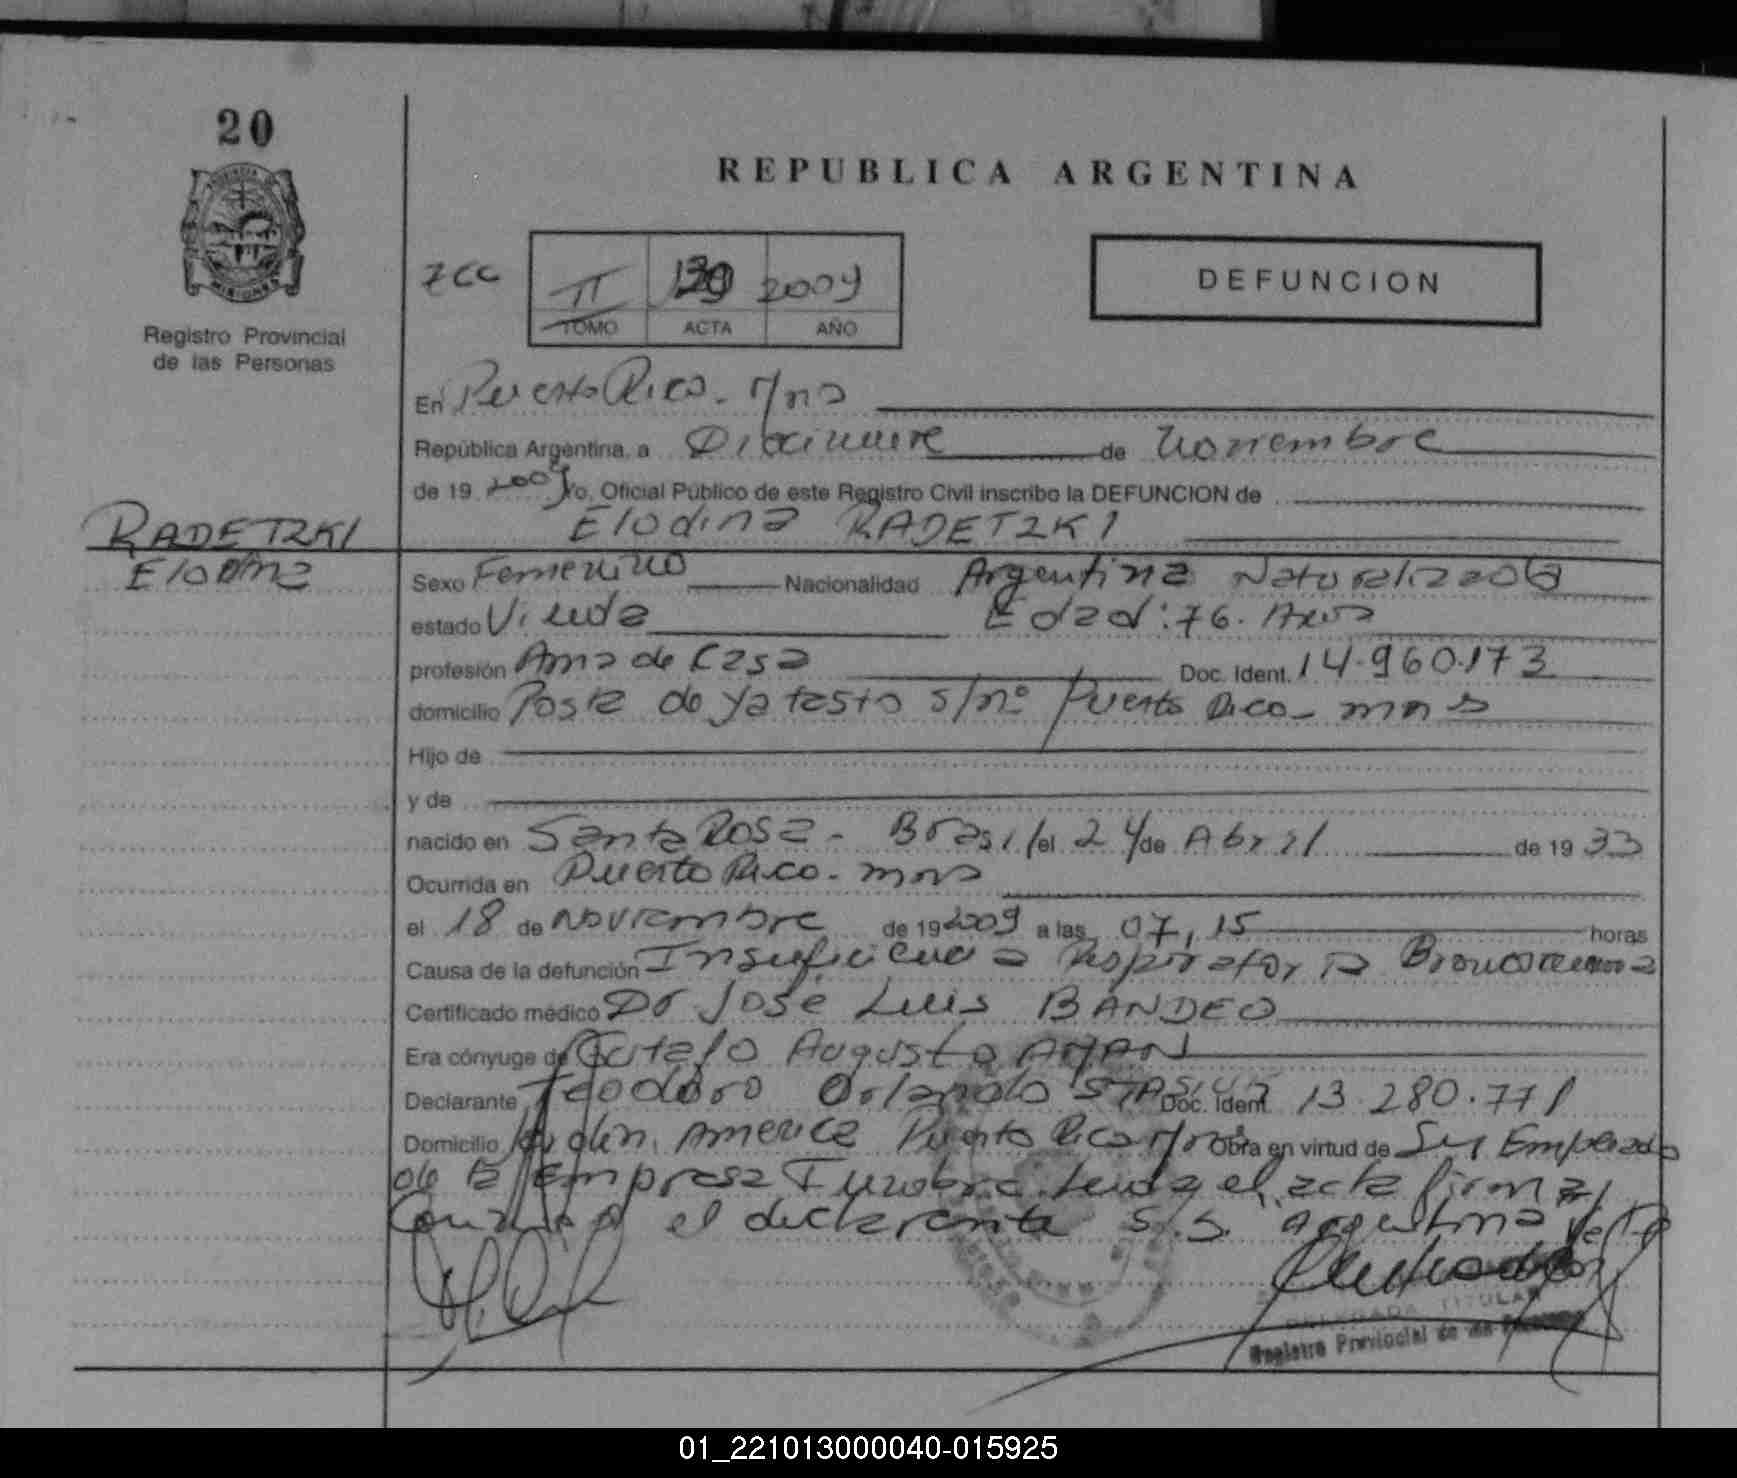 20
REPUBLICA ARGENTINA
DEFUNCION
7CC
II 2009
TOMO ACTA AÑO
Registro Provincial
de las Personas
En Puerto Rico - Mns
República Argentina, a Diecinueve de Noviembre
de 19 2009 Yo, Oficial Público de este Registro Civil inscribo la DEFUNCION de
RADETZKI
Elodina
Elodina RADETZKI
Sexo Femenino Nacionalidad Argentina Naturalizada
estado Viuda Edad: 76. Años
profesión Ama de Casa Doc. Ident. 14.960.173
domicilio Posta de Yatasto s/nº Puerto Rico - mns
Hijo de
y de
nacido en Santa Rosa - Brasil el 24 de Abril de 19 33
Ocurrida en Puerto Rico - mns
el 18 de Noviembre de 19 2009 a las 07,15 horas
Causa de la defunción Insuficiencia Respiratoria
Certificado médico Dr Jose Luis BANDEO
Era cónyuge de Augusto
Declarante Teodoro Orlando Doc. Ident. 13.280.771
Domicilio Jardin America Puerto Rico Mns Obra en virtud de Ser Empleado
de la Empresa Funebre. Leida el acta firma
Conmigo el declarante S/S. "Argentina"
DELEGADA TITULAR
Registro Provincial de las Personas
01_221013000040-015925